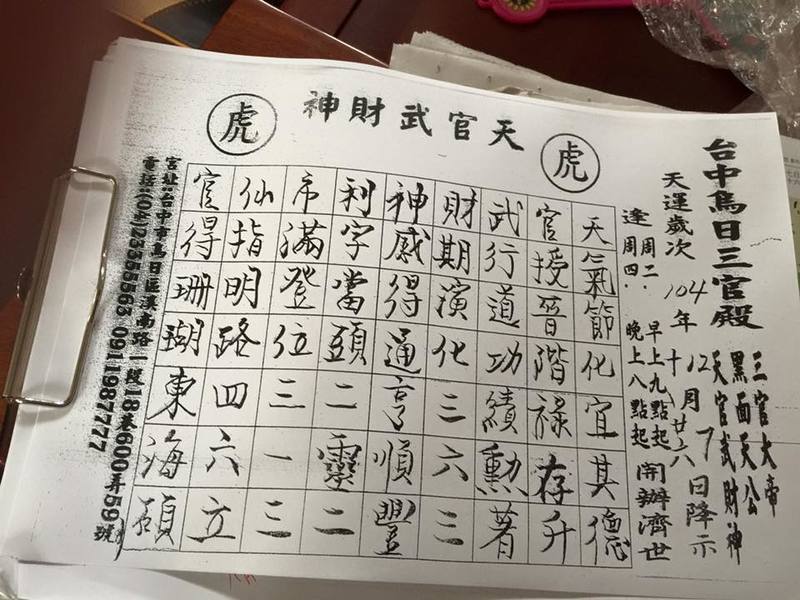 虎 天官武財神 虎
台中烏日三官殿
三官大帝
黑面天公
天官武財神
天運歲次 104年 12月 7日降示
十月廿六
逢 周二、 早上九點起 開辦濟世
周四、 晚上八點起
天氣節化宜其德
官授晉階祿存升
武行道功績勳著
財期演化三六三
神感得通亨順豐
利字當頭二靈二
市滿登位三一三
仙指明路四六立
官得珊瑚東海碩
宮址:台中市烏日區溪南路一段18巷600弄59號
電話:(04)23355563 0911987777